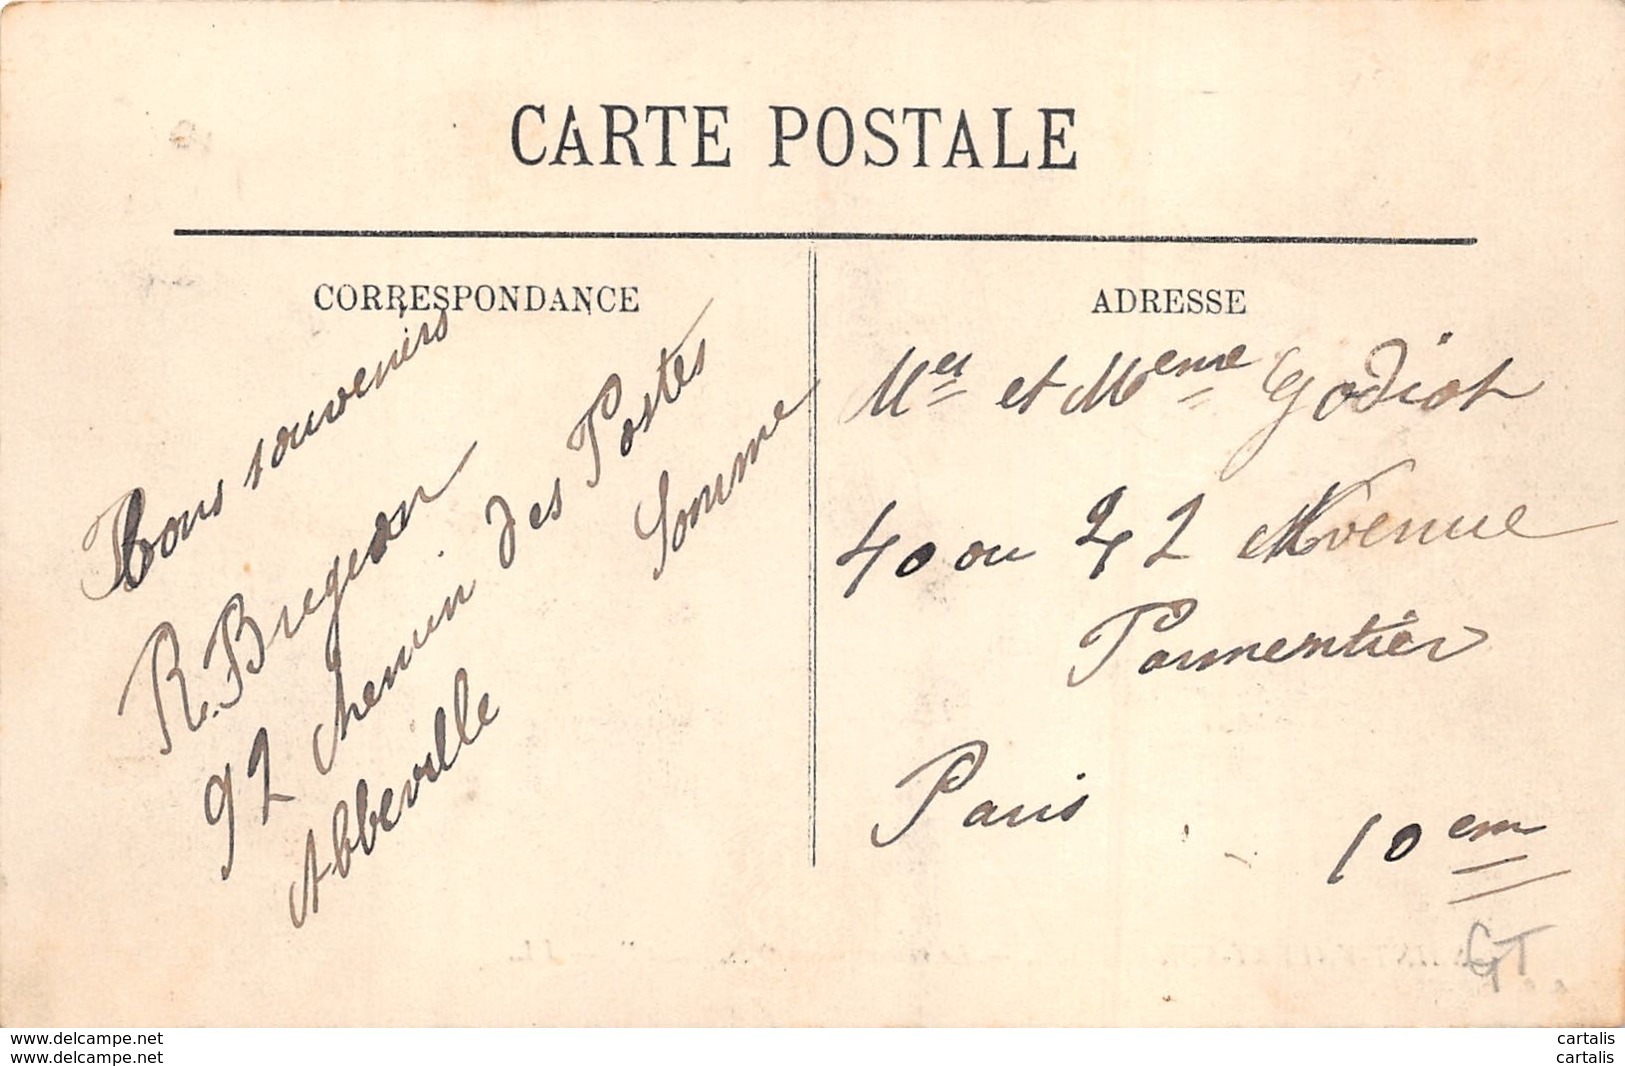 CARTE POSTALE
CORRESPONDANCE
Bons souvenirs
R. Bregeon
92 chemin des Postes
Abbeville Somme
ADRESSE
Mer et Meme Godiot
40 ou 42 Avenue
Parmentier
Paris
10em
GT
www.delcampe.net
www.delcampe.net
cartalis
cartalis